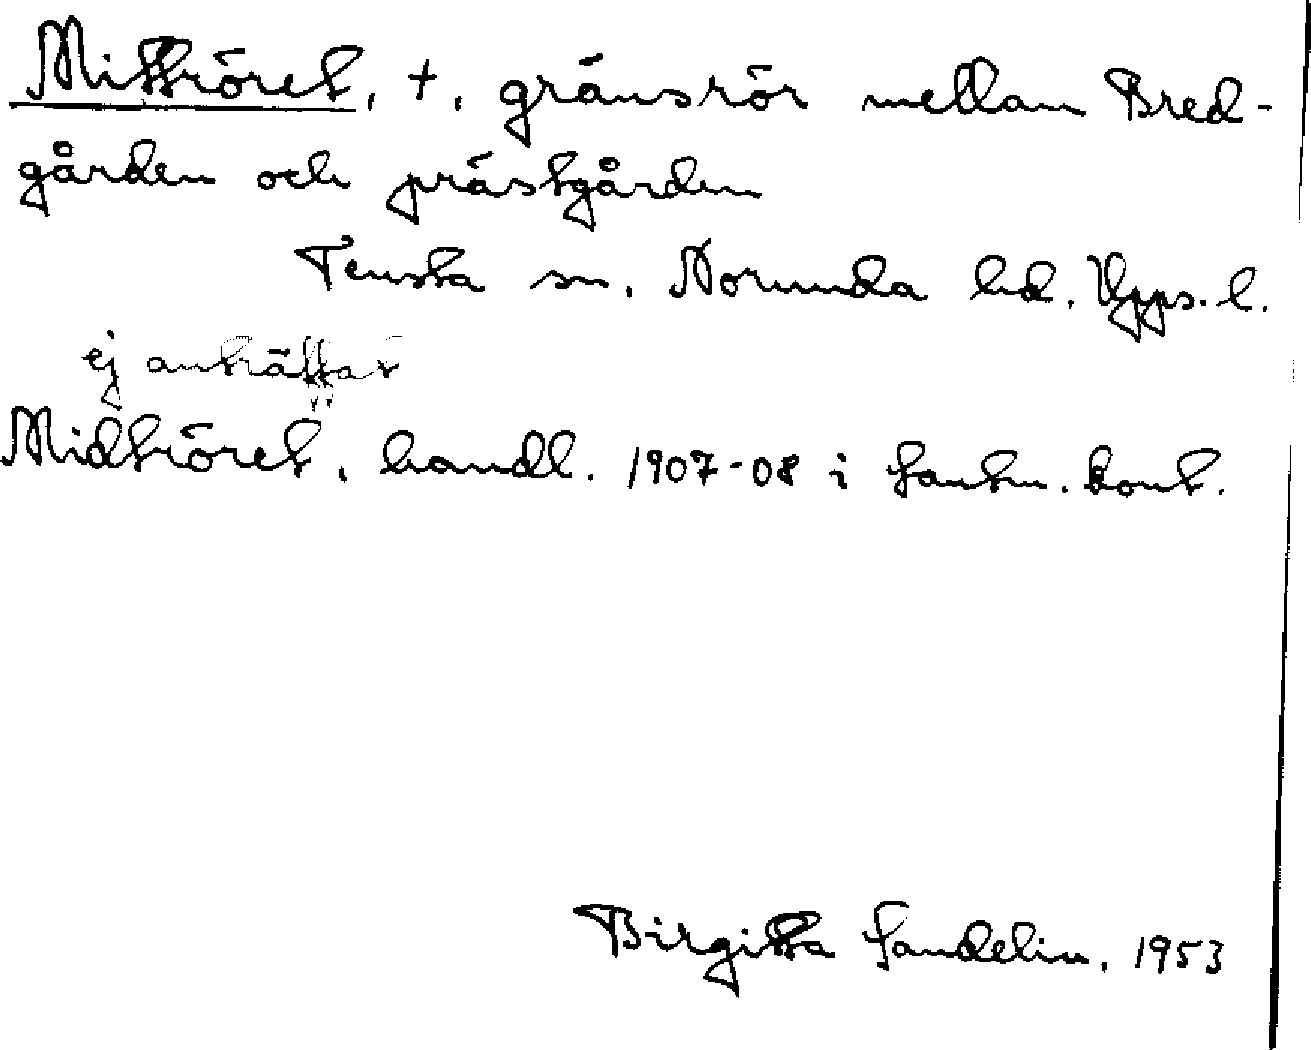 Mittröret, +, gränsrör mellan Bred-
gården och prästgården
Tensta sn, Norunda hd. Upps. l.
ej anträffat
Midtröret, handl. 1907-08 i lantm. kont.
Birgitta Sandelin, 1953